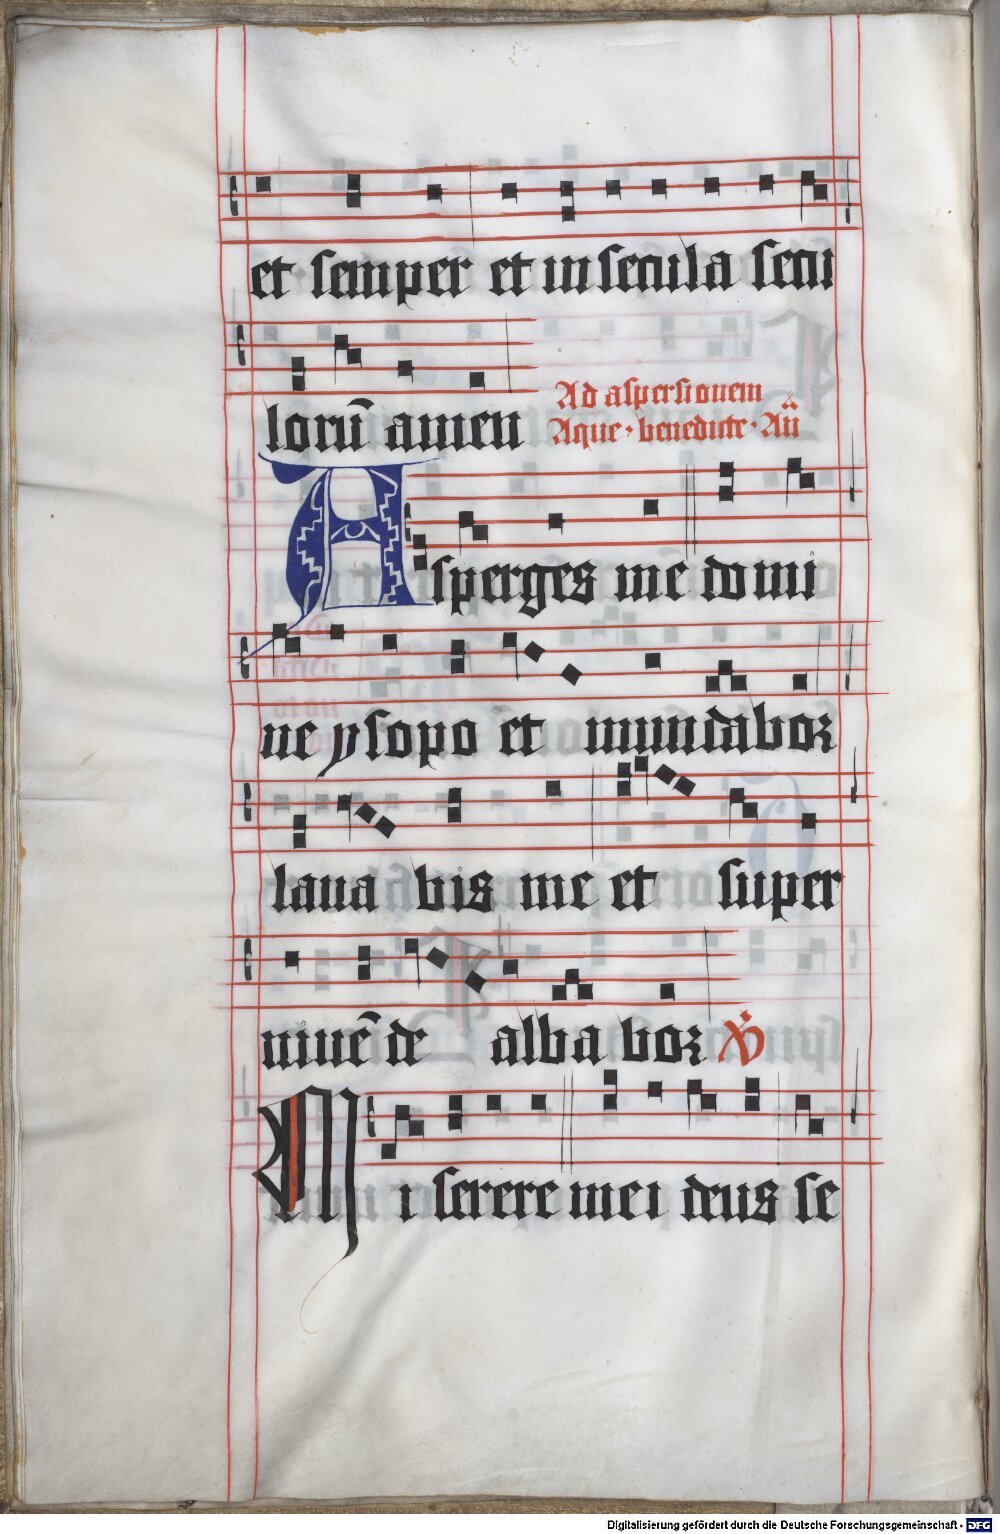 et semper et in secula secu
lorū amen
Ad aspersionem
Aque · benedicte · Añ
Asperges me domi
ne ysopo et mundabor
laua bis me et super
niuē de alba bor
Miserere mei deus se
Digitalisierung gefördert durch die Deutsche Forschungsgemeinschaft - DFG